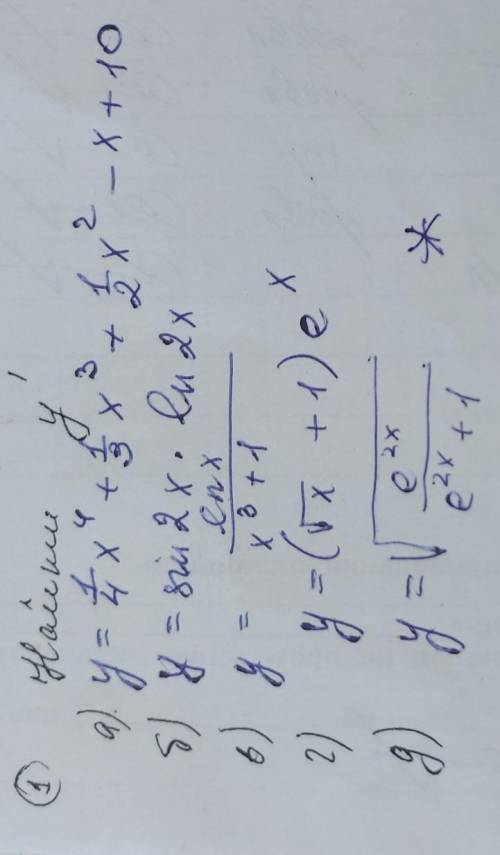 ① Найти y'
а) y = 1/4 x⁴ + 1/3 x³ + 1/2 x² − x + 10
б) y = sin 2x · ln 2x
в) y = ln x / (x³ + 1)
г) y = (√x + 1) e^x
д) y = √(e^(2x) / (e^(2x) + 1)) *